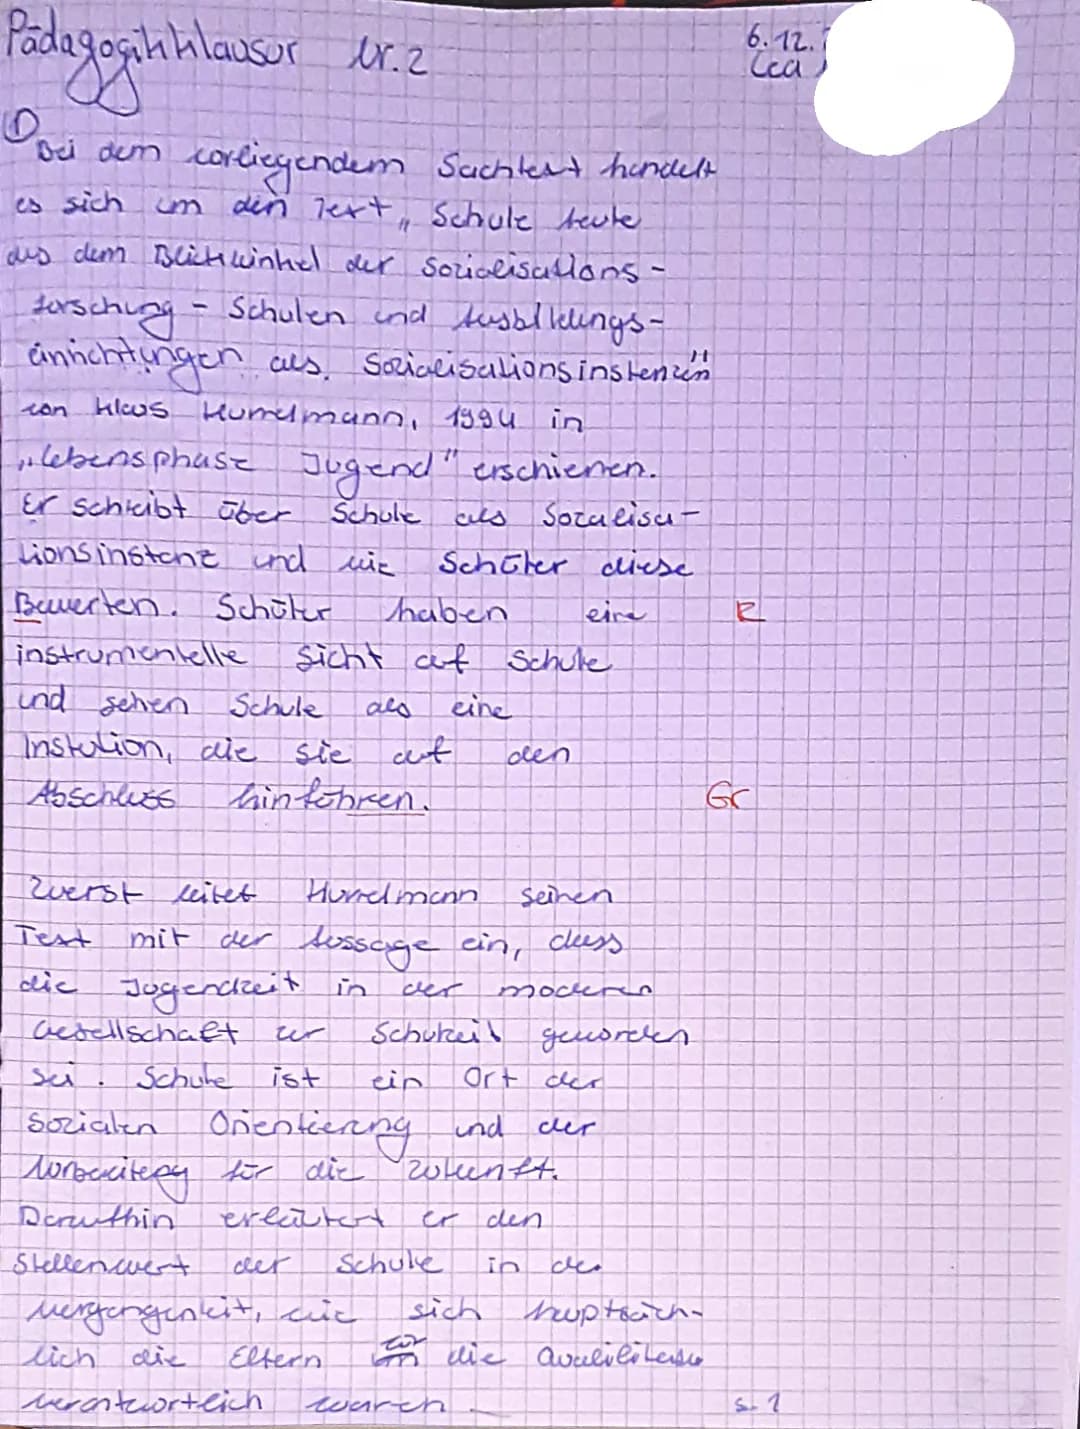 Pädagogikklausur Nr. 2
6.12.
Lea
①
Bei dem vorliegendem Sachtext handelt
es sich um den Text „Schule heute
aus dem Blickwinkel der Sozialisations-
forschung - Schulen und Ausbildungs-
einrichtungen als Sozialisationsinstanzen"
von Klaus Hurrelmann, 1994 in
„Lebensphase Jugend" erschienen.
Er schreibt über Schule als Sozalisa-
tionsinstanz und wie Schüler diese
Bewerten. Schüler haben eine R
instrumentelle Sicht auf Schule
und sehen Schule als eine
Instution, die sie auf den
Abschluss hinführen. Gr
Zuerst leitet Hurrelmann seinen
Text mit der Aussage ein, dass
die Jugendzeit in der modernen
Gesellschaft zur Schulzeit geworden
sei. Schule ist ein Ort der
sozialen Orientierung und der
Vorbereitung für die Zukunft.
Daraufhin erläutert er den
Stellenwert der Schule in der
Vergangenheit, wie sich hauptsäch-
lich die Eltern für die
verantwortlich waren
S. 1